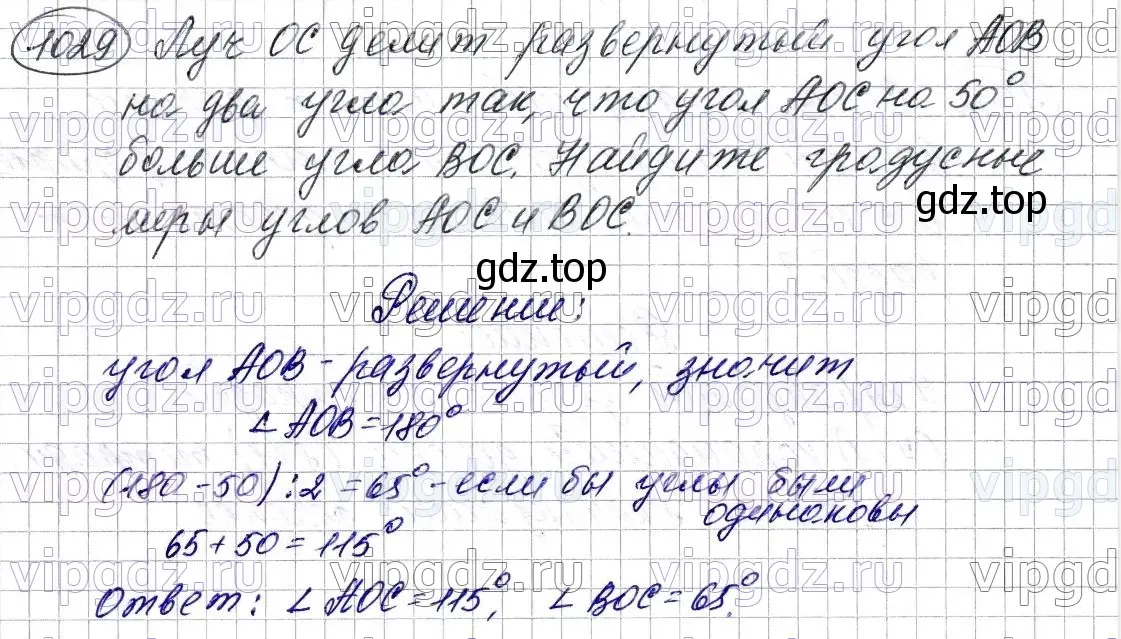 1029 Луч ОС делит развернутый угол АОВ
на два угла так, что угол АОС на 50°
больше угла ВОС. Найдите градусные
меры углов АОС и ВОС.
gdz.top
gdz.top
Решение:
угол АОВ - развернутый, значит
∠ АОВ = 180°
(180 - 50) : 2 = 65° - если бы углы были
одинаковы
65 + 50 = 115°
Ответ: ∠ АОС = 115°, ∠ ВОС = 65°.